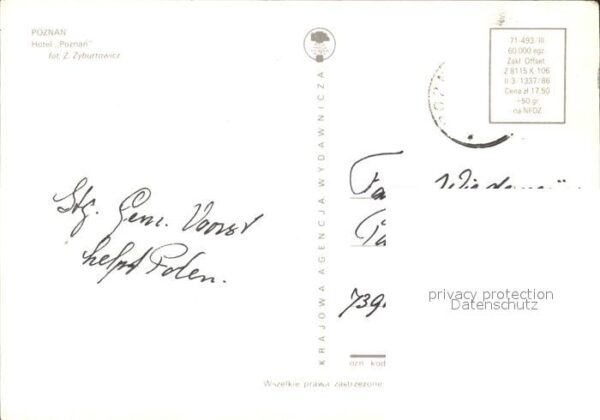 POZNAŃ
Hotel „Poznań"
fot. Z. Żyburtowicz
Stg. Gem. Voorst
helpt Polen.
KRAJOWA AGENCJA WYDAWNICZA
71-493/III
60.000 egz.
Zakł. Offset.
Z 8115 K-106
II 3/1337/86
Cena zł 17,50
+50 gr
na NFOZ
Fa
739
privacy protection
Datenschutz
ozn kod
Wszelkie prawa zastrzeżone